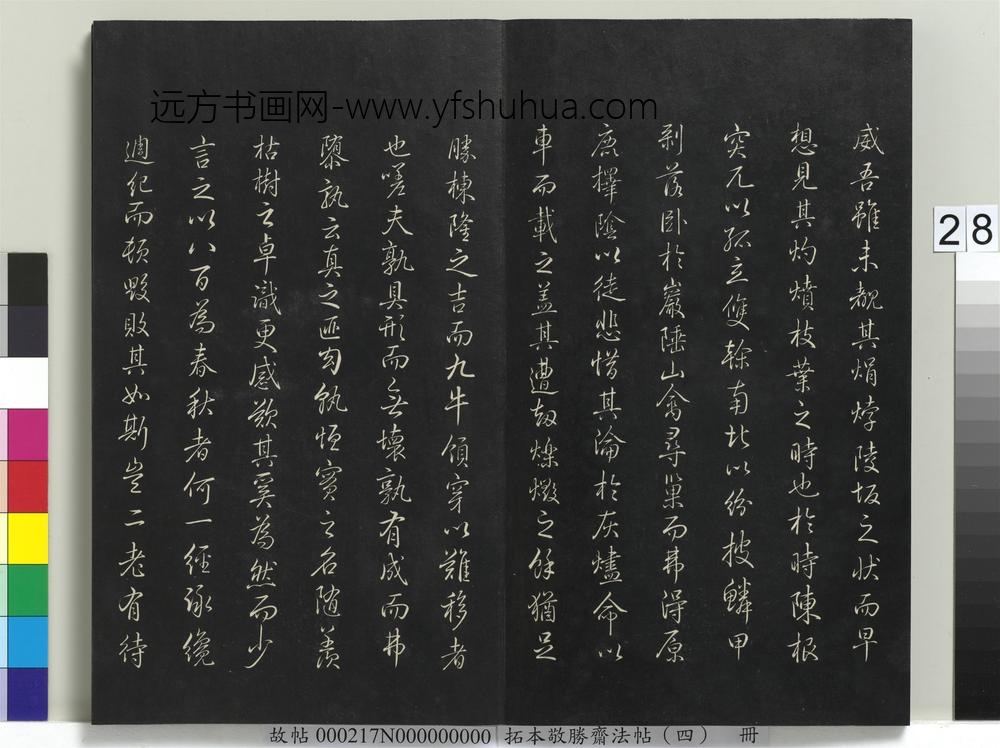 远方书画网-www.yfshuhua.com
威吾雖未覩其焆㶿陵坂之状而早
想見其灼燌枝葉之時也於時陳根
突兀以孤立雙榦南北以紛披鱗甲
剥落卧於巖陲山禽尋巢而弗得原
鹿擇陰以徒悲惜其淪於灰燼命以
車而載之盖其遭劫爍燬之餘猶足
勝棟隆之吉而九牛領穿以難移者
也嗟夫孰具形而無壊孰有成而弗
隳孰云真之匪匄孰恒賓之名随羨
枯樹之卓識更感歎其奚為然而少
言之以八百為春秋者何一経詠纔
週紀而頓毁敗其如斯豈二老有待
28
故帖 000217N000000000 拓本敬勝齋法帖（四） 冊